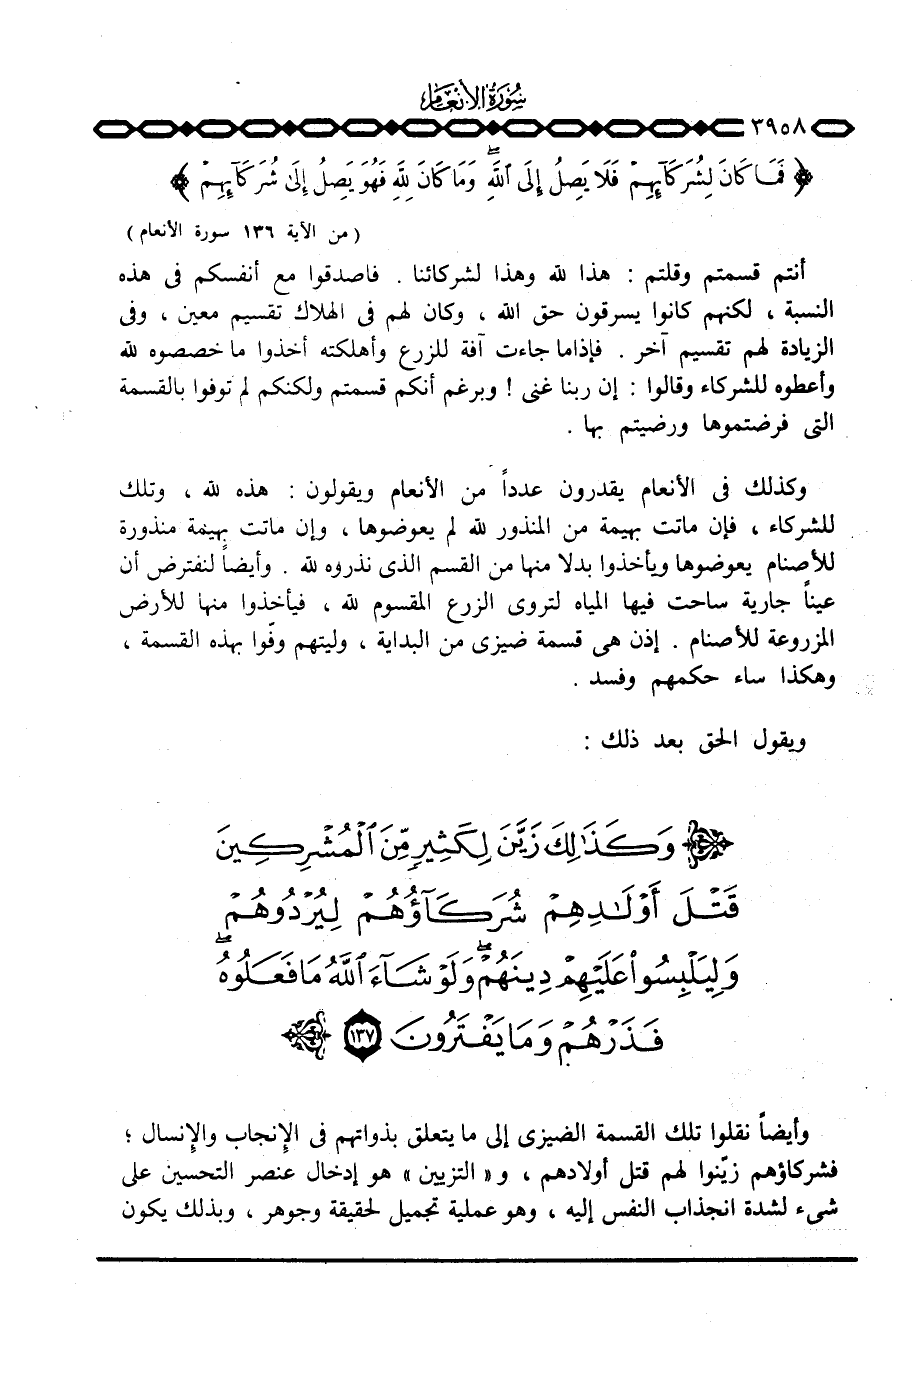 سُورَةُ الأَنْعَام
٣٩٥٨
﴿ فَمَا كَانَ لِشُرَكَآئِهِمْ فَلَا يَصِلُ إِلَى ٱللَّهِ ۖ وَمَا كَانَ لِلَّهِ فَهُوَ يَصِلُ إِلَىٰ شُرَكَآئِهِمْ ﴾
( من الآية ١٣٦ سورة الأنعام )
أنتم قسمتم وقلتم : هذا لله وهذا لشركائنا . فاصدقوا مع أنفسكم فى هذه
النسبة ، لكنهم كانوا يسرقون حق الله ، وكان لهم فى الهلاك تقسيم معين ، وفى
الزيادة لهم تقسيم آخر . فإذاما جاءت آفة للزرع وأهلكته أخذوا ما خصصوه لله
وأعطوه للشركاء وقالوا : إن ربنا غنى ! وبرغم أنكم قسمتم ولكنكم لم توفوا بالقسمة
التى فرضتموها ورضيتم بها .
وكذلك فى الأنعام يقدرون عدداً من الأنعام ويقولون : هذه لله ، وتلك
للشركاء ، فإن ماتت بهيمة من المنذور لله لم يعوضوها ، وإن ماتت بهيمة منذورة
للأصنام يعوضوها ويأخذوا بدلا منها من القسم الذى نذروه لله . وأيضاً لنفترض أن
عيناً جارية ساحت فيها المياه لتروى الزرع المقسوم لله ، فيأخذوا منها للأرض
المزروعة للأصنام . إذن هى قسمة ضيزى من البداية ، وليتهم وفّوا بهذه القسمة ،
وهكذا ساء حكمهم وفسد .
ويقول الحق بعد ذلك :
وَكَذَٰلِكَ زَيَّنَ لِكَثِيرٍ مِّنَ ٱلْمُشْرِكِينَ
قَتْلَ أَوْلَٰدِهِمْ شُرَكَآؤُهُمْ لِيُرْدُوهُمْ
وَلِيَلْبِسُوا۟ عَلَيْهِمْ دِينَهُمْ ۖ وَلَوْ شَآءَ ٱللَّهُ مَا فَعَلُوهُ ۖ
فَذَرْهُمْ وَمَا يَفْتَرُونَ ١٣٧
وأيضاً نقلوا تلك القسمة الضيزى إلى ما يتعلق بذواتهم فى الإنجاب والإنسال ؛
فشركاؤهم زيّنوا لهم قتل أولادهم ، و« التزيين » هو إدخال عنصر التحسين على
شىء لشدة انجذاب النفس إليه ، وهو عملية تجميل لحقيقة وجوهر ، وبذلك يكون